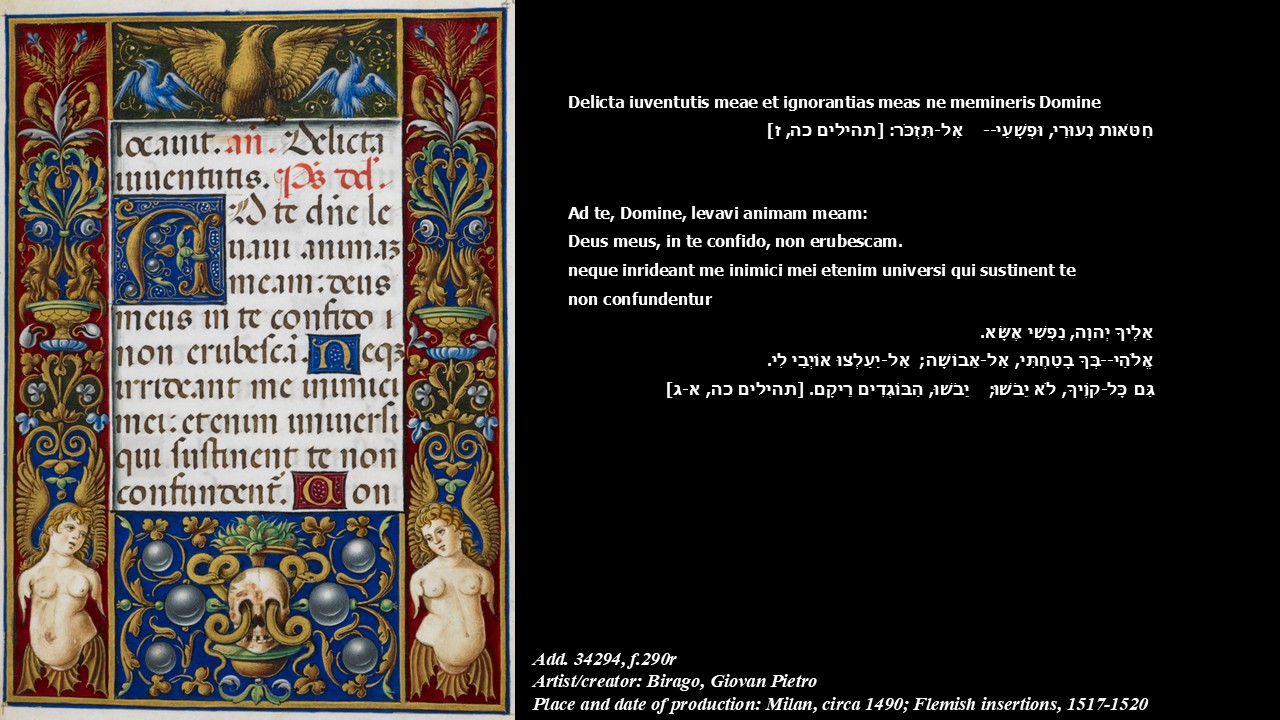 locauit. añ. Delicta
iuuentutis. Ps dd.
AD te dñe le
uaui animaz
meam: deus
meus in te confido
non erubescã. Neqz
irrideant me inimici
mei: etenim uniuersi
qui sustinent te non
confundent̃. Non
Delicta iuventutis meae et ignorantias meas ne memineris Domine
חַטֹּאות נְעוּרַי, וּפְשָׁעַי-- אַל-תִּזְכֹּר: [תהילים כה, ז]
Ad te, Domine, levavi animam meam:
Deus meus, in te confido, non erubescam.
neque inrideant me inimici mei etenim universi qui sustinent te
non confundentur
אֵלֶיךָ יְהוָה, נַפְשִׁי אֶשָּׂא.
אֱלֹהַי--בְּךָ בָטַחְתִּי, אַל-אֵבוֹשָׁה; אַל-יַעַלְצוּ אוֹיְבַי לִי.
גַּם כָּל-קֹוֶיךָ, לֹא יֵבֹשׁוּ; יֵבֹשׁוּ, הַבּוֹגְדִים רֵיקָם. [תהילים כה, א-ג]
Add. 34294, f.290r
Artist/creator: Birago, Giovan Pietro
Place and date of production: Milan, circa 1490; Flemish insertions, 1517-1520